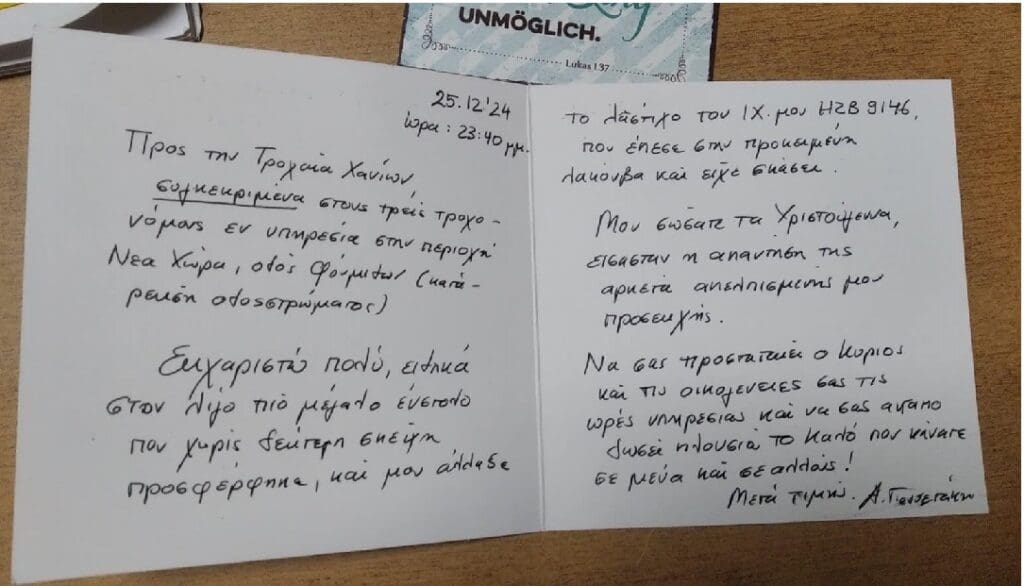 UNMÖGLICH.
Lukas 1.37
25.12'24
ώρα: 23:40 μμ.
Προς την Τροχαία Χανίων,
συγκεκριμένα στους τρεις τροχο-
νόμους εν υπηρεσία στην περιοχή
Νεα Χώρα, οδός (κατά-
ρευση οδοστρώματος)
Ευχαριστώ πολύ, ειδικά
στον λίγο πιό μεγάλο ένστολο
που χωρίς δεύτερη σκέψη
προσφέρθηκε, και μου άλλαξε
το λάστιχο του ΙΧ. μου ΗΖΒ 9146,
που έπεσε στην προκειμένη
λακούβα και είχε σκάσει.
Μου σώσατε τα Χριστούγεννα,
εισασταν η απαντηση της
αρκετα απελπισμένης μου
προσευχής.
Να σας προστατεύει ο Κυριος
και τις οικογενειες σας τις
ωρές υπηρεσιας και να σας ανταπο
δωσει πλουσιά το καλό που κάνατε
σε μένα και σε αλλους!
Μετά τιμής. Α.